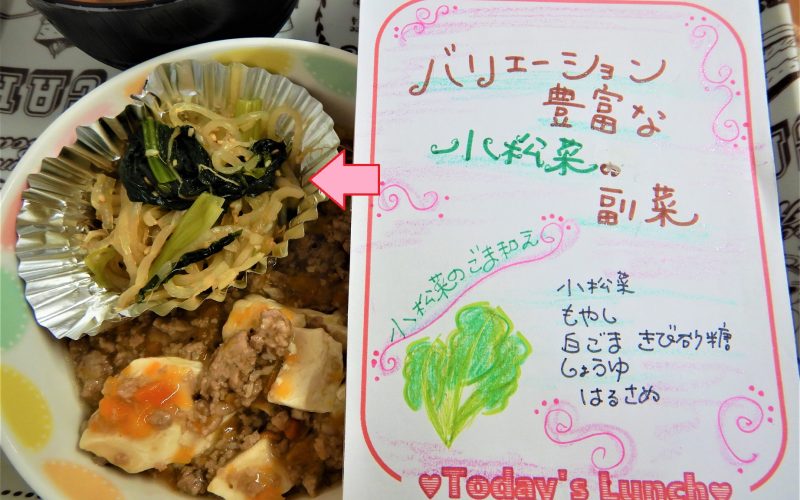 バリエーション
豊富な
小松菜の
副菜
小松菜のごま和え
小松菜
もやし
白ごま きび砂糖
しょうゆ
はるさめ
♥Today's Lunch♥